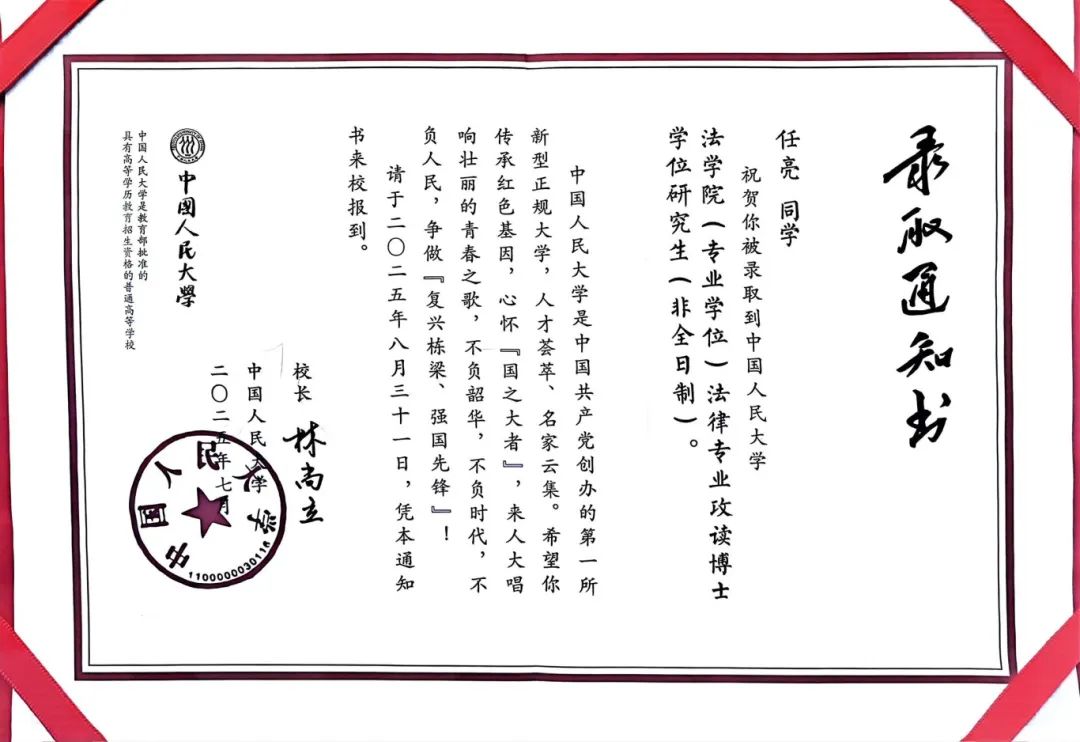 录取通知书
任亮 同学
祝贺你被录取到中国人民大学
法学院（专业学位）法律专业攻读博士
学位研究生（非全日制）。
中国人民大学是中国共产党创办的第一所
新型正规大学，人才荟萃、名家云集。希望你
传承红色基因，心怀『国之大者』，来人大唱
响壮丽的青春之歌，不负韶华，不负时代，不
负人民，争做『复兴栋梁、强国先锋』！
请于二〇二五年八月三十一日，凭本通知
书来校报到。
校长 林尚立
中国人民大学
二〇二五年七月
中国人民大学
1100000030116
中國人民大學
中国人民大学是教育部批准的
具有高等学历教育招生资格的普通高等学校